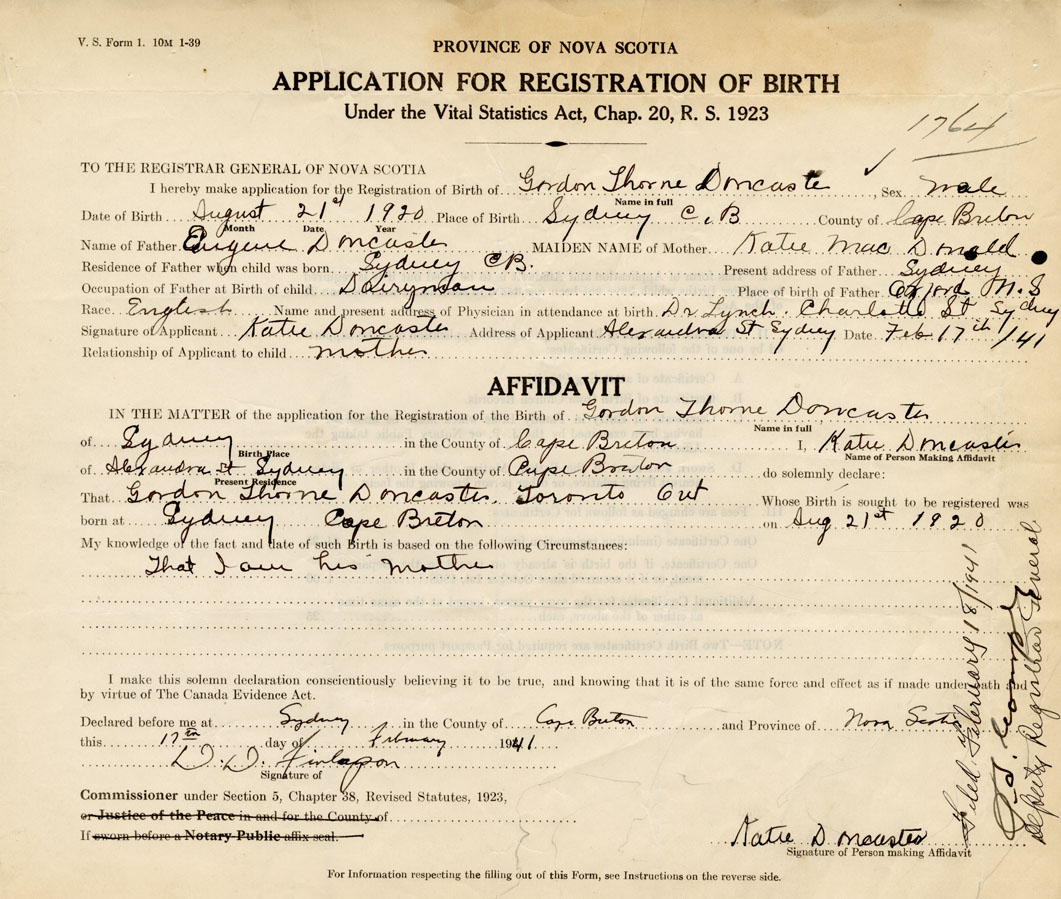 V. S. Form 1. 10M 1-39
PROVINCE OF NOVA SCOTIA
APPLICATION FOR REGISTRATION OF BIRTH
Under the Vital Statistics Act, Chap. 20, R. S. 1923
1764
TO THE REGISTRAR GENERAL OF NOVA SCOTIA
I hereby make application for the Registration of Birth of Gordon Thorne Doncaster ✓, Sex male
Name in full
Date of Birth August 21st 1920 Place of Birth Sydney C.B County of Cape Breton
Month Date Year
Name of Father Eugene Doncaster MAIDEN NAME of Mother Katie Mac Donald
Residence of Father when child was born Sydney CB. Present address of Father Sydney
Occupation of Father at Birth of child Dairyman Place of birth of Father Oxford N.S
Race English Name and present address of Physician in attendance at birth Dr Lynch. Charlotte St Sydney
Signature of Applicant Katie Doncaster Address of Applicant Alexandra St Sydney Date Feb 17th /41
Relationship of Applicant to child mother
AFFIDAVIT
IN THE MATTER of the application for the Registration of the Birth of Gordon Thorne Doncaster
Name in full
of Sydney in the County of Cape Breton I, Katie Doncaster
Birth Place Name of Person Making Affidavit
of Alexandra St Sydney in the County of Cape Breton do solemnly declare:
Present Residence
That Gordon Thorne Doncaster. Toronto Ont Whose Birth is sought to be registered was
born at Sydney Cape Breton on Aug 21st 1920
My knowledge of the fact and date of such Birth is based on the following Circumstances:
That I am his mother
I make this solemn declaration conscientiously believing it to be true, and knowing that it is of the same force and effect as if made under oath and
by virtue of The Canada Evidence Act.
Declared before me at Sydney in the County of Cape Breton and Province of Nova Scotia
this 17th day of February 1941
D. D. Finlayson
Signature of
Commissioner under Section 5, Chapter 38, Revised Statutes, 1923,
or Justice of the Peace in and for the County of
If sworn before a Notary Public affix seal.
Katie Doncaster
Signature of Person making Affidavit
For Information respecting the filling out of this Form, see Instructions on the reverse side.
Filed February 18/1941
Deputy Registrar General